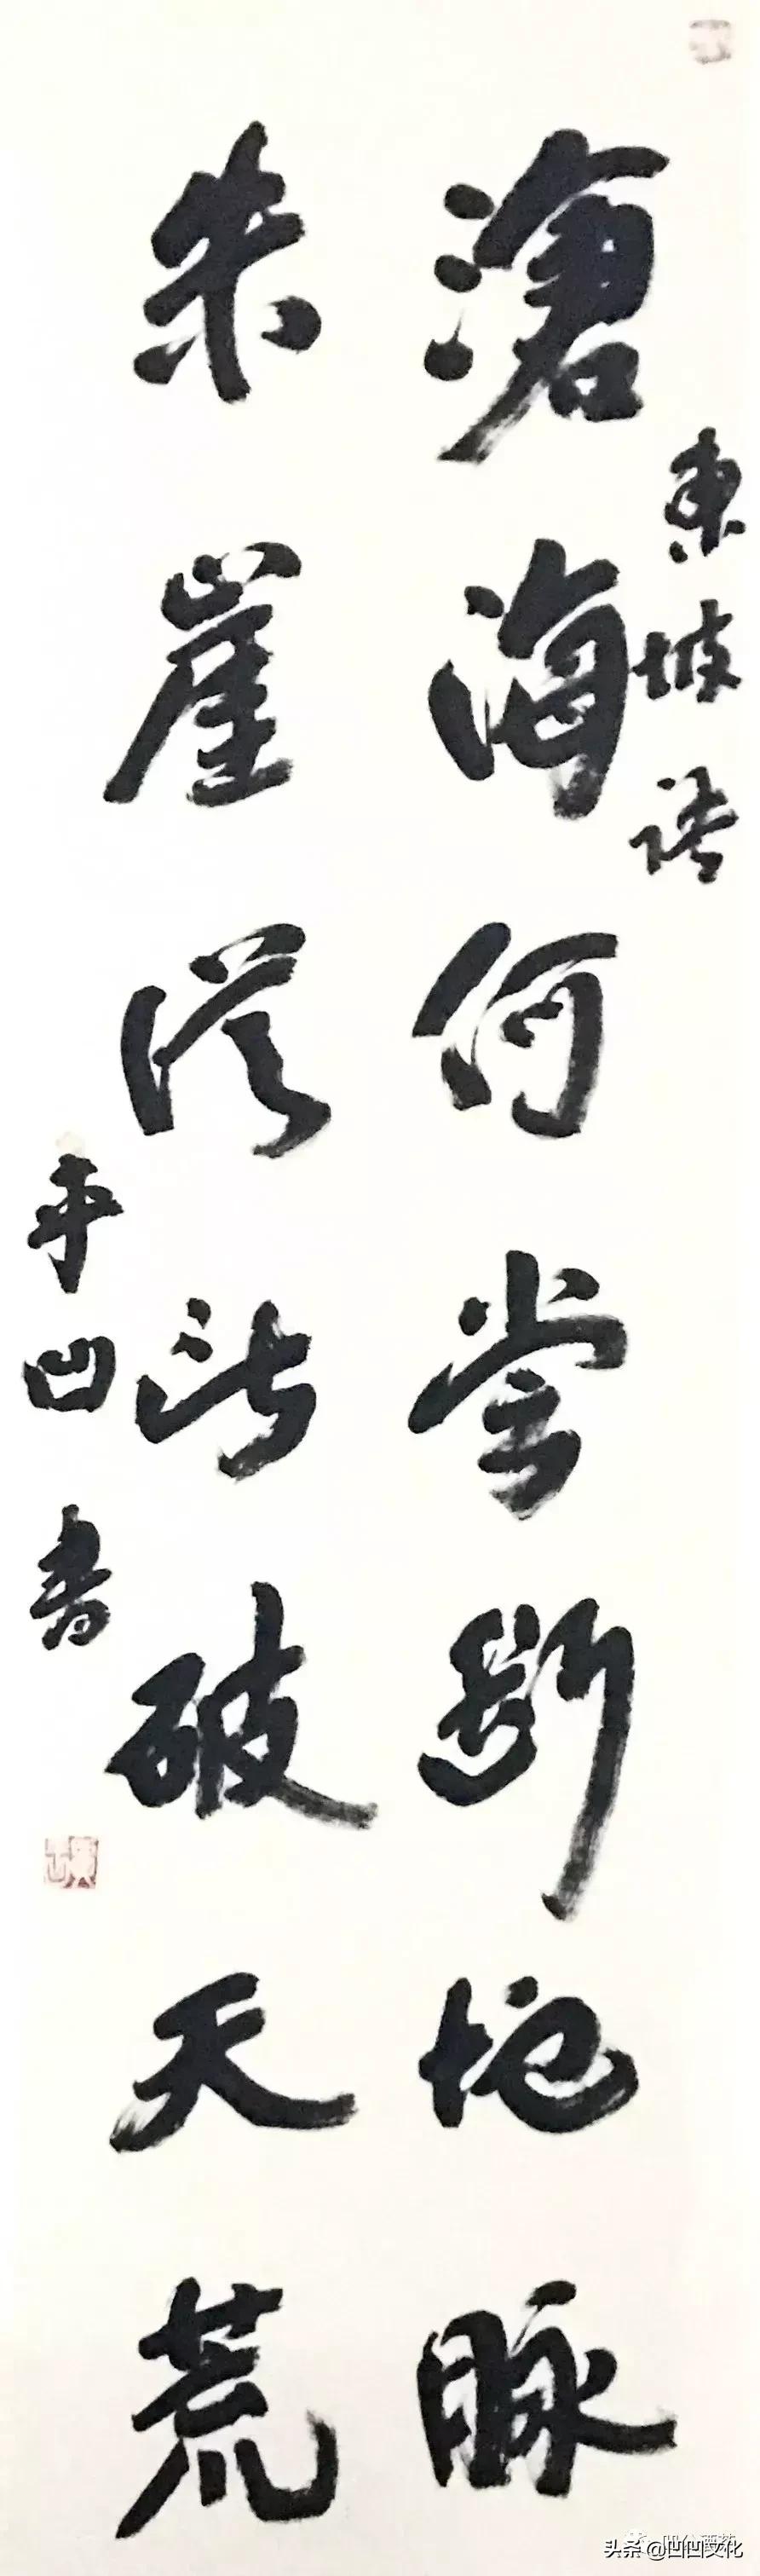 東坡語
滄海何尝斷地脉
朱崖從此破天荒
平凹書
头条 @凹凹文化